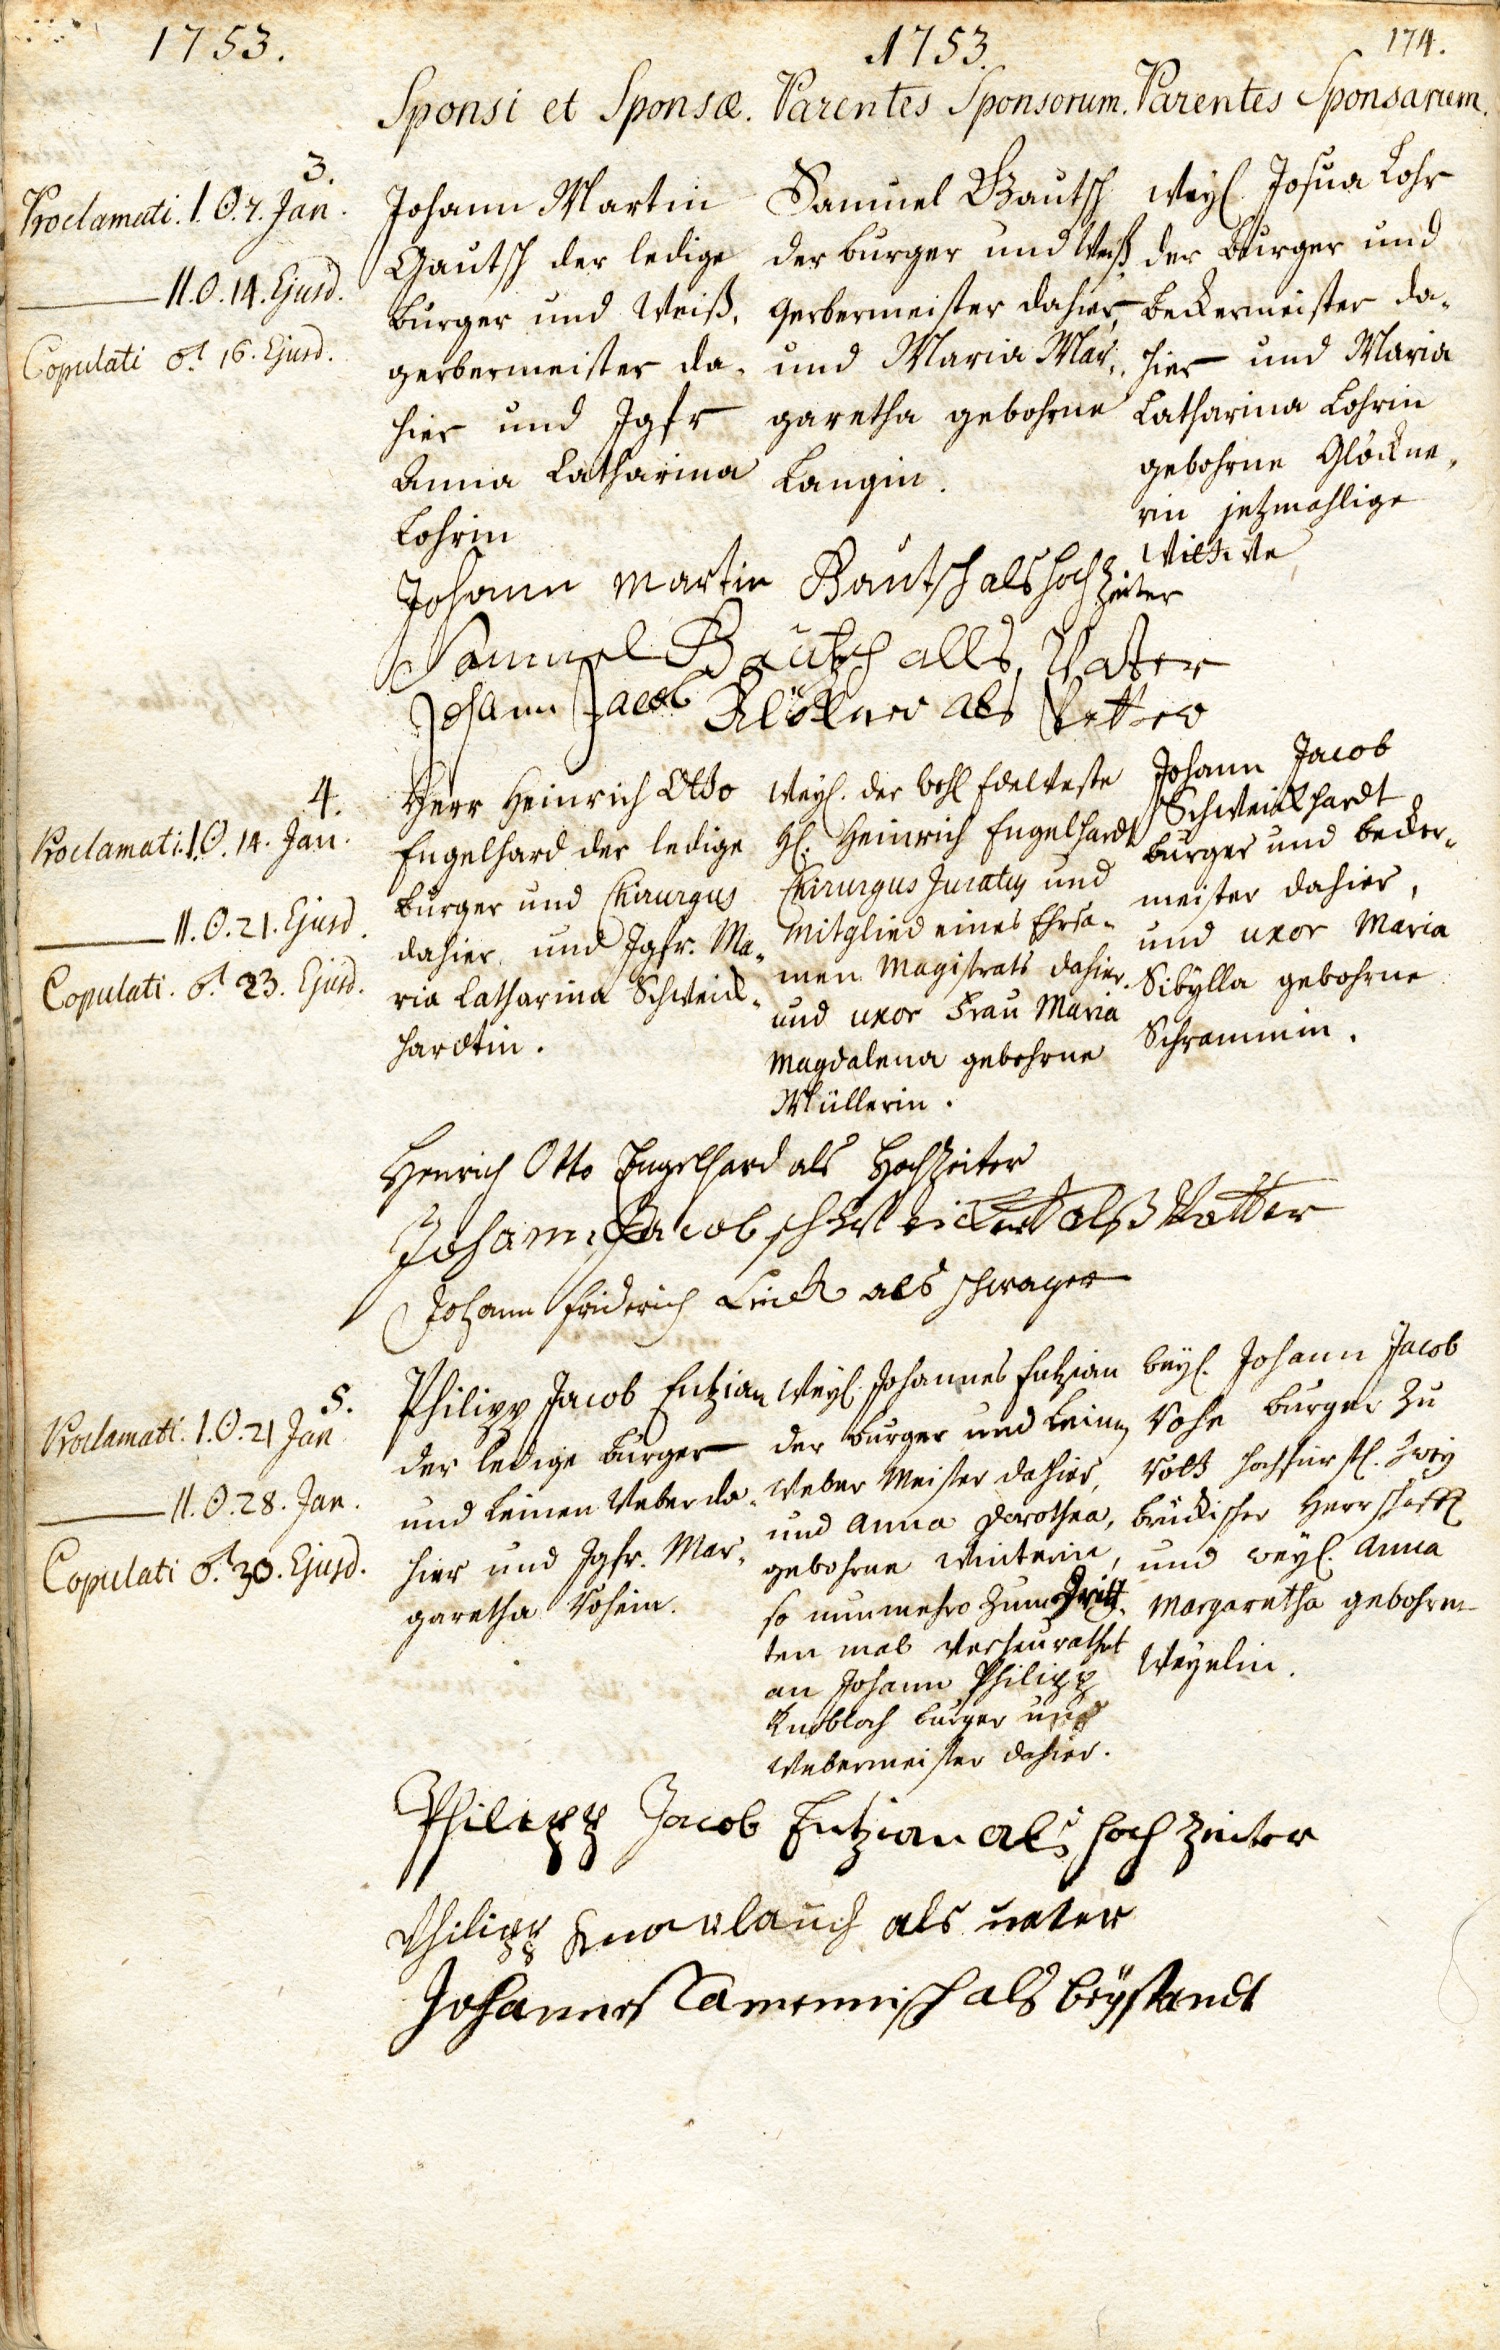 1753.
1753.
174.
Sponsi et Sponsæ. Parentes Sponsorum. Parentes Sponsarum.
3.
Proclamati. I. ☉. 7. Jan.
II. ☉. 14. Ejusd.
Copulati ♂ 16. Ejusd.
Johann Martin
Gautsch der ledige
burger und Weiß,
gerbermeister da-
hier und Jgfr
Anna Catharina
Lohrin
Samuel Bautsch
der burger und Weiß
gerbermeister dahier,
und Maria Mar-
garetha gebohrne
Langin.
weyl. Josua Lohr
der burger und
beckermeister da-
hier und Maria
Catharina Lohrin
gebohrne Glöckne-
rin jetzmahlige
Wittwe
Johann Martin Bautsch als hochzeiter
Samuel Bautsch alls Vatter
Johann Jacob Glöckner als Vetter
4.
Proclamati. I. ☉. 14. Jan.
II. ☉. 21. Ejusd.
Copulati. ♂ 23. Ejusd.
Herr Heinrich Otto
Engelhard der ledige
burger und Chirurgus
dahier, und Jgfr. Ma-
ria Catharina Schweick-
hardtin.
weyl. der wohl Edelveste
H. Heinrich Engelhardt
Chirurgus Juratus und
Mitglied eines Ehrsa-
men Magistrats dahier.
und uxor Frau Maria
Magdalena gebohrne
Müllerin.
Johann Jacob
Schweickhardt
burger und becker-
meister dahier,
und uxor Maria
Sibylla gebohrne
Schrammin.
Henrich Otto Engelhard als Hochzeiter
Johann Jacob schweickert alß Vatter
Johann friderich Linck als schwager
5.
Proclamati. I. ☉. 21 Jan
II. ☉. 28. Jan.
Copulati ♂ 30. Ejusd.
Philipp Jacob Entzian
der ledige burger
und leinen Weber da-
hier und Jgfr. Mar-
garetha Vohsin.
weyl. Johannes Entzian
der burger und leinen
Weber Meister dahier,
und Anna Dorothea,
gebohrne Winterin,
so nunmehro zum Dritt-
ten mal verheurathet
an Johann Philipp
Knobloch burger und
Webermeister dahier.
weyl. Johann Jacob
Vohs burger zu
hochfürstl. Zwey
brückischer Herrschafft
und weyl. Anna
Margaretha gebohrne
Weyelin.
Philipp Jacob Entzian als hoch zeiter
Philipp Knowlauch als vater
Johannes Camennisch als beystandt